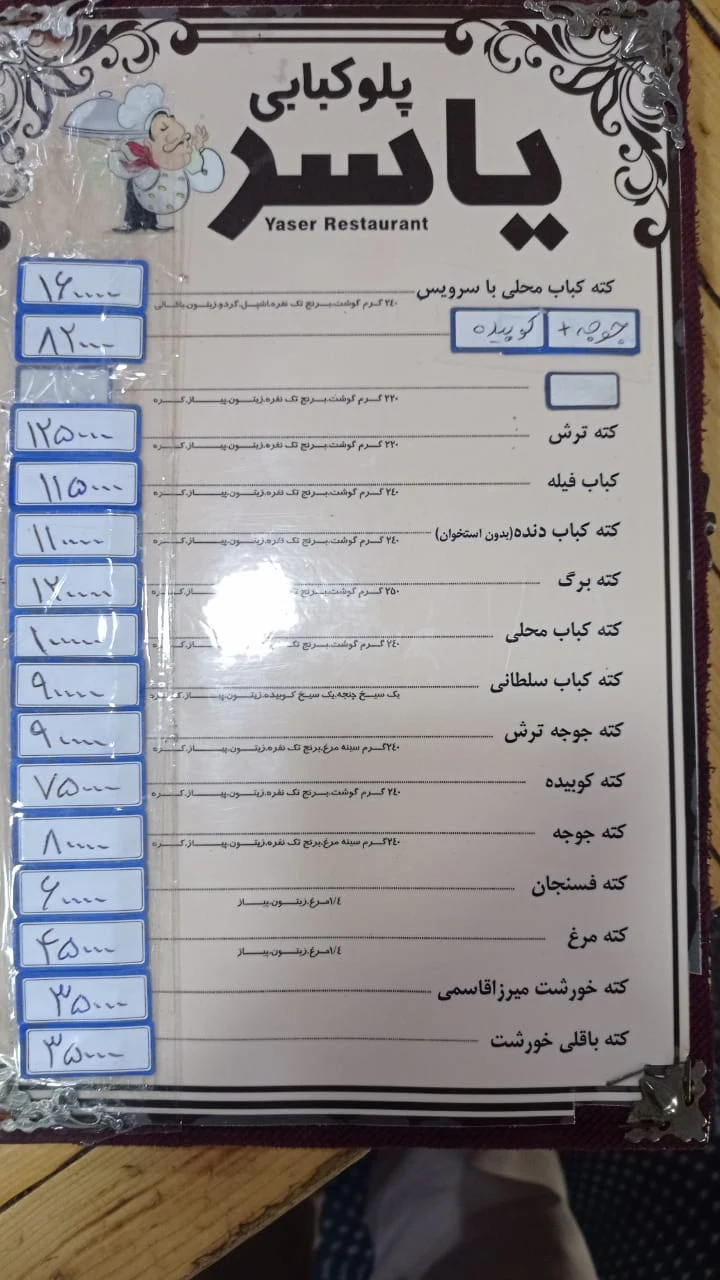 پلوکبابی
یاسر
Yaser Restaurant
کته کباب محلی با سرویس ۱۶۰۰۰۰
۲٤۰ گرم گوشت،برنج تک نفره،اشپل،گردو،زیتون،باقالی
جوجه + کوبیده ۸۲۰۰۰
۲۲۰ گرم گوشت،برنج تک نفره،زیتون،پیاز،کره
کته ترش ۱۲۵۰۰۰
۲۲۰ گرم گوشت،برنج تک نفره،زیتون،پیاز،کره
کباب فیله ۱۱۵۰۰۰
۲٤۰ گرم گوشت،برنج تک نفره،زیتون،پیاز،کره
کته کباب دنده(بدون استخوان) ۱۱۰۰۰۰
۲٤۰ گرم گوشت،برنج تک نفره،زیتون،پیاز،کره
کته برگ ۱۲۰۰۰۰
۲۵۰ گرم گوشت،برنج تک نفره،زیتون،پیاز،کره
کته کباب محلی ۱۰۰۰۰۰
۲٤۰ گرم گوشت،برنج تک نفره،زیتون،پیاز،کره
کته کباب سلطانی ۹۰۰۰۰
یک سیخ چنجه،یک سیخ کوبیده،زیتون،پیاز،کره
کته جوجه ترش ۹۰۰۰۰
۲٤۰گرم سینه مرغ،برنج تک نفره،زیتون،پیاز،کره
کته کوبیده ۷۵۰۰۰
۲٤۰ گرم گوشت،برنج تک نفره،زیتون،پیاز،کره
کته جوجه ۸۰۰۰۰
۲٤۰گرم سینه مرغ،برنج تک نفره،زیتون،پیاز،کره
کته فسنجان ۶۰۰۰۰
۱/٤مرغ،زیتون،پیاز
کته مرغ ۴۵۰۰۰
۱/٤مرغ،زیتون،پیاز
کته خورشت میرزاقاسمی ۳۵۰۰۰
کته باقلی خورشت ۳۵۰۰۰